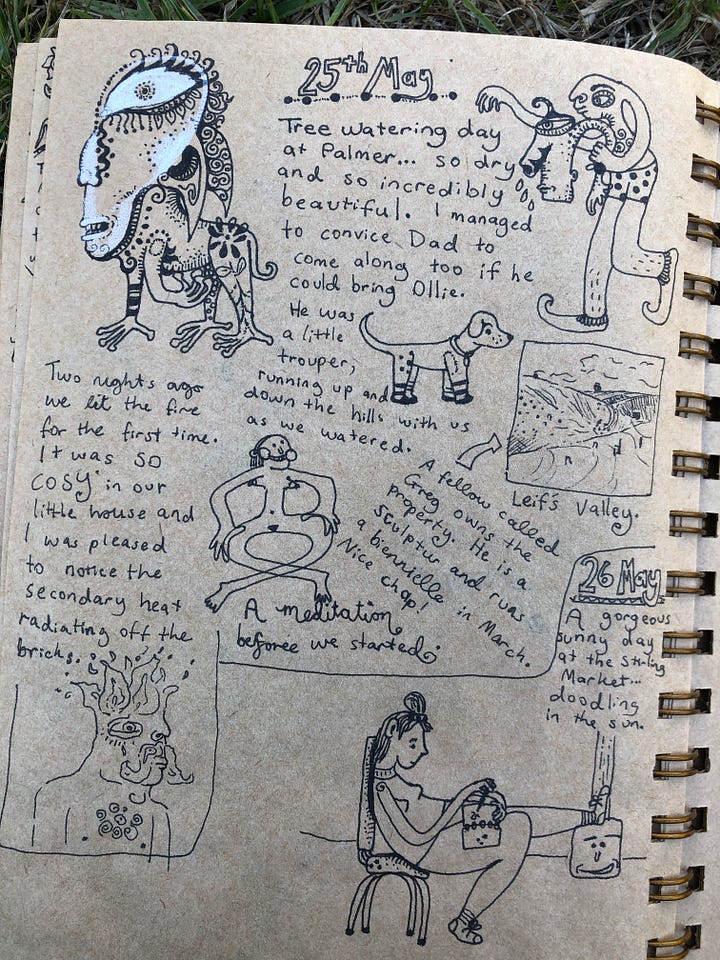 25th May
Tree watering day
at Palmer... so dry
and so incredibly
beautiful. I managed
to convice Dad to
come along too if he
could bring Ollie.
He was
a little
trouper,
running up and
down the hills with us
as we watered.
Two nights ago
we lit the fire
for the first time.
It was so
cosy in our
little house and
I was pleased
to notice the
secondary heat
radiating off the
bricks.
A meditation
beforee we started.
Leif's Valley.
A fellow called
Greg owns the
property. He is a
sculptur and runs
a biennielle in March.
Nice chap!
26 May
A gorgeous
sunny day
at the Stirling
Market...
doodling
in the sun.